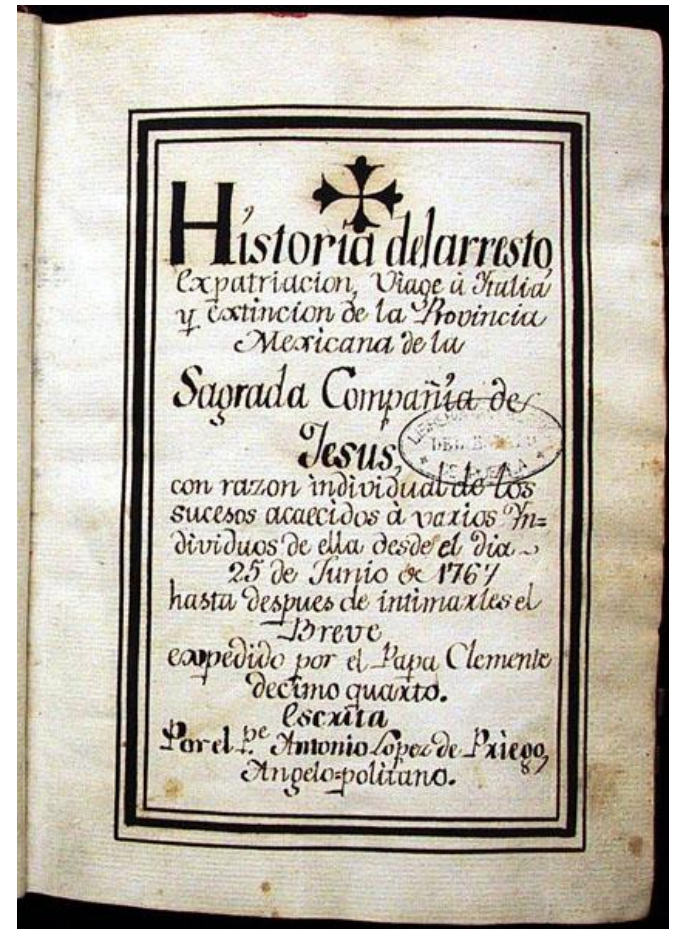 Historia del arresto,
expatriacion, Viage à Italia
y extincion de la Provincia
Mexicana de la
Sagrada Compañia de
Jesus,
con razon individual de los
sucesos acaecidos à varios In=
dividuos de ella desde el dia
25 de Junio de 1767
hasta despues de intimarles el
Breve
expedido por el Papa Clemente
decimo quarto.
Escrita
Por el P.e Antonio Lopez de Priego,
Angelo=politano.
DEL ESTADO